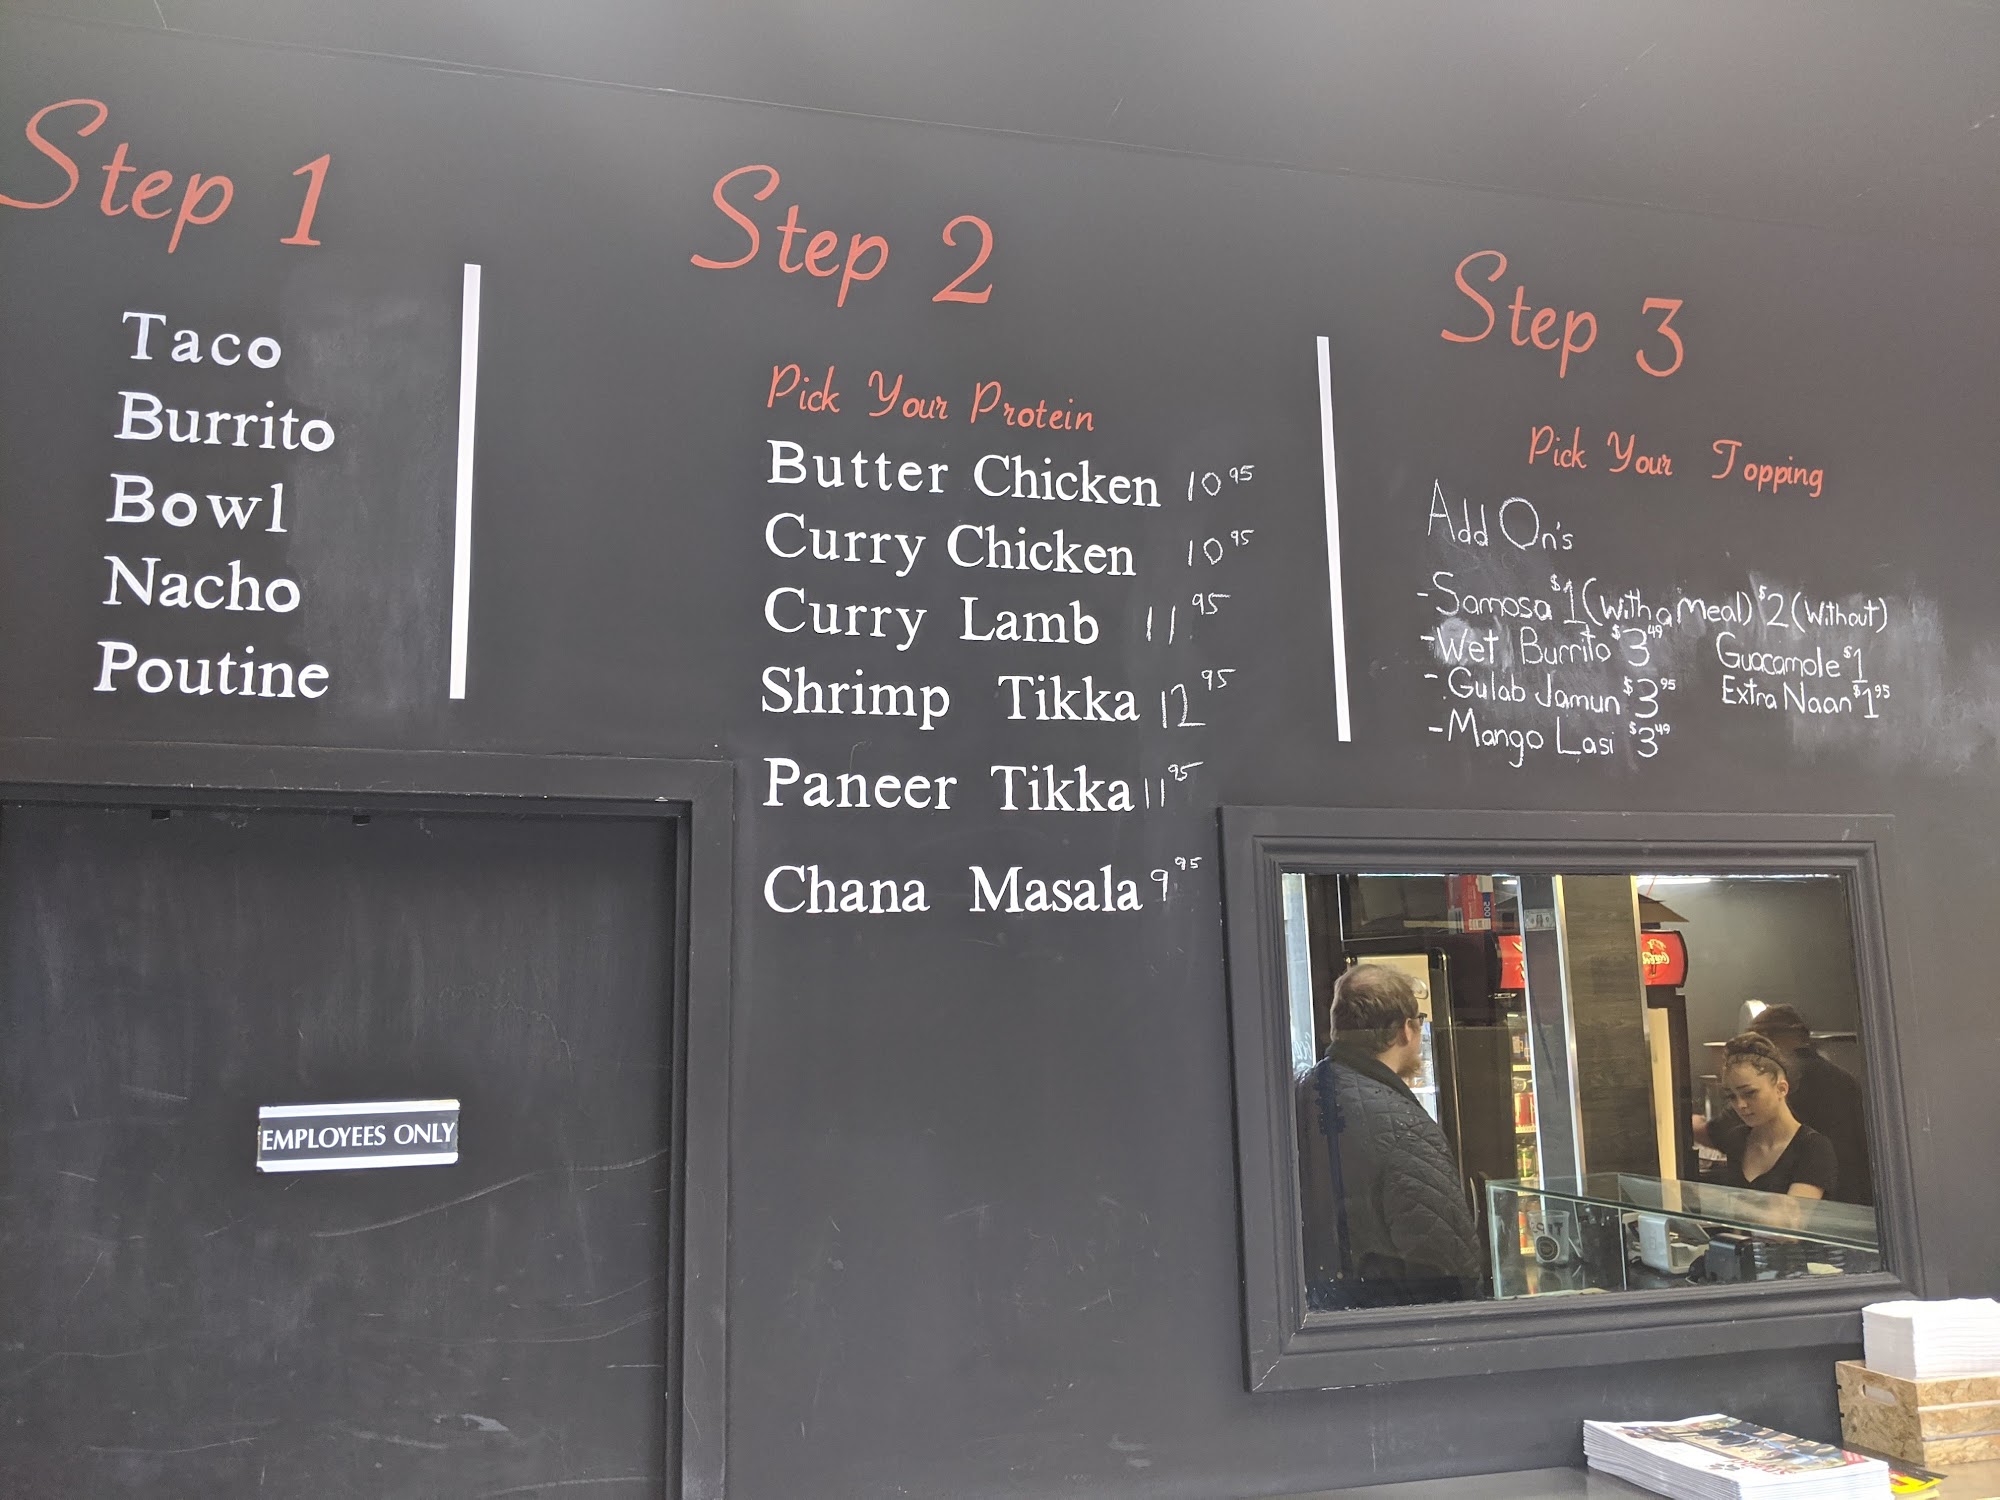 Step 1
Taco
Burrito
Bowl
Nacho
Poutine
Step 2
Pick Your Protein
Butter Chicken 10 95
Curry Chicken 10 95
Curry Lamb 11 95
Shrimp Tikka 12 95
Paneer Tikka 11 95
Chana Masala 9 95
Step 3
Pick Your Topping
Add On's
- Samosa $1 (with a meal) $2 (without)
- Wet Burrito $3 49 Guacamole $1
- Gulab Jamun $3 95 Extra Naan $1 95
- Mango Lasi $3 49
EMPLOYEES ONLY